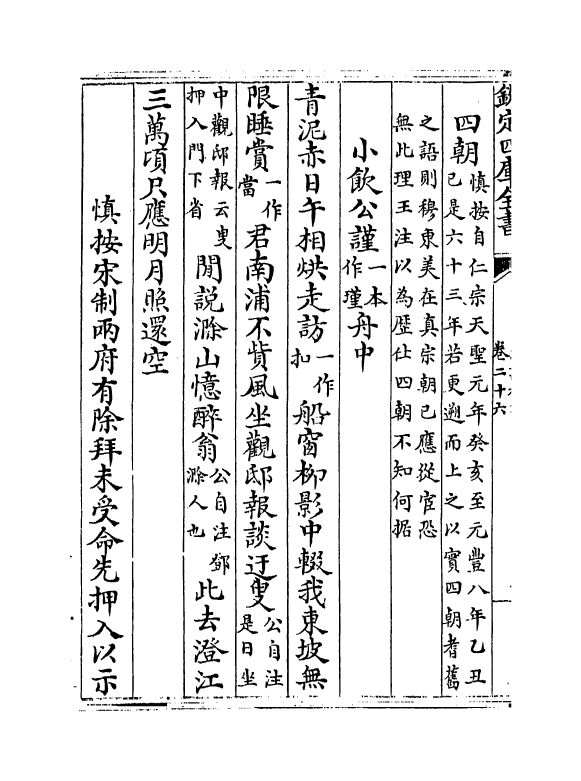 欽定四庫全書
卷二十六
四朝慎按自仁宗天聖元年癸亥至元豐八年乙丑
已是六十三年若更遡而上之以實四朝耆舊
之語則穆東美在真宗朝已應從宦恐
無此理王注以為歴仕四朝不知何据
小飲公謹一本作瑾舟中
青泥赤日午相烘走訪一作扣船窗栁影中輟我東坡無
限睡賞一作當君南浦不貲風坐觀邸報談迂叟公自注是日坐
中觀邸報云叟押入門下省閒説滁山憶醉翁公自注鄧滁人也此去澄江
三萬頃只應明月照還空
慎按宋制兩府有除拜未受命先押入以示